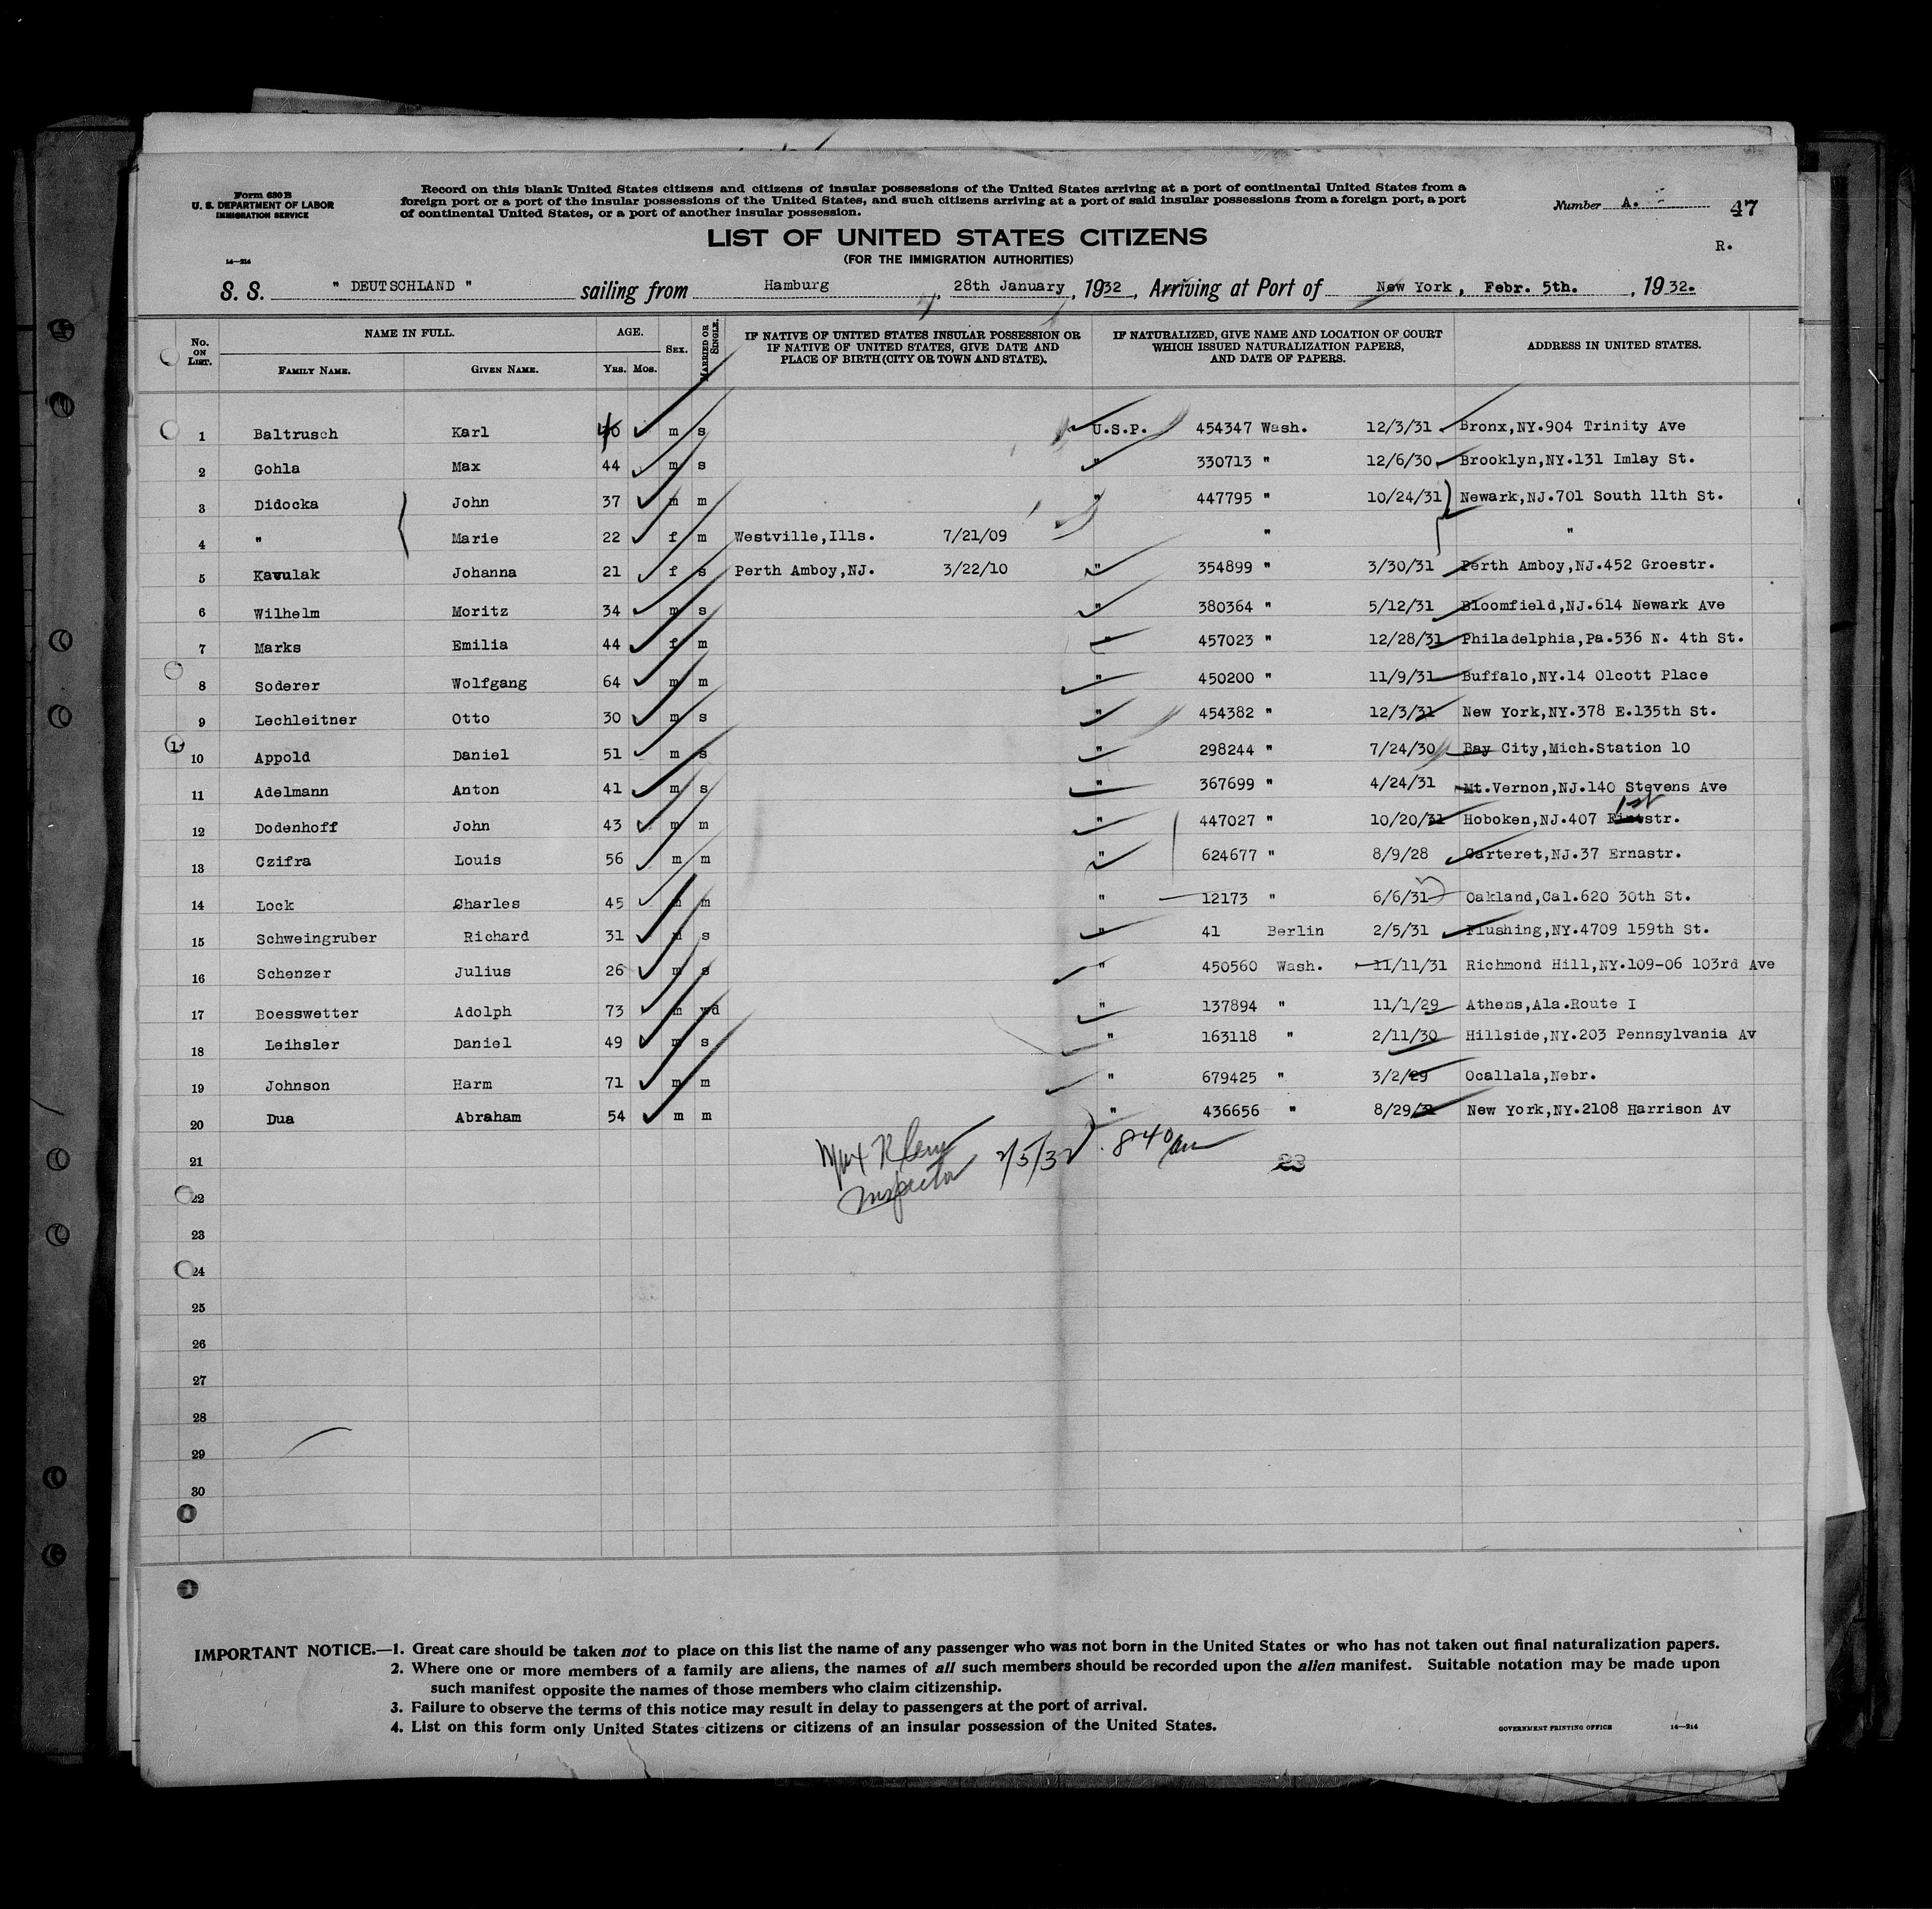 Form 630 B
U. S. DEPARTMENT OF LABOR
IMMIGRATION SERVICE
14—214
Record on this blank United States citizens and citizens of insular possessions of the United States arriving at a port of continental United States from a
foreign port or a port of the insular possessions of the United States, and such citizens arriving at a port of said insular possessions from a foreign port, a port
of continental United States, or a port of another insular possession.
Number A. 47
R.
LIST OF UNITED STATES CITIZENS
(FOR THE IMMIGRATION AUTHORITIES)
S. S. " DEUTSCHLAND " sailing from Hamburg, 28th January, 1932, Arriving at Port of New York, Febr. 5th., 1932.
No. ON LIST. NAME IN FULL. FAMILY NAME. GIVEN NAME. AGE. YRS. MOS. SEX. MARRIED OR SINGLE. IF NATIVE OF UNITED STATES INSULAR POSSESSION OR IF NATIVE OF UNITED STATES, GIVE DATE AND PLACE OF BIRTH (CITY OR TOWN AND STATE). IF NATURALIZED, GIVE NAME AND LOCATION OF COURT WHICH ISSUED NATURALIZATION PAPERS, AND DATE OF PAPERS. ADDRESS IN UNITED STATES.
1 Baltrusch Karl m s U.S.P. 454347 Wash. 12/3/31 Bronx,NY.904 Trinity Ave
2 Gohla Max 44 m s " 330713 " 12/6/30 Brooklyn,NY.131 Imlay St.
3 Didocka John 37 m m " 447795 " 10/24/31 Newark,NJ.701 South 11th St.
4 " Marie 22 f m Westville,Ills. 7/21/09 " "
5 Kavulak Johanna 21 f s Perth Amboy,NJ. 3/22/10 " 354899 " 3/30/31 Perth Amboy,NJ.452 Groestr.
6 Wilhelm Moritz 34 m s " 380364 " 5/12/31 Bloomfield,NJ.614 Newark Ave
7 Marks Emilia 44 f m " 457023 " 12/28/31 Philadelphia,Pa.536 N. 4th St.
8 Soderer Wolfgang 64 m m " 450200 " 11/9/31 Buffalo,NY.14 Olcott Place
9 Lechleitner Otto 30 m s " 454382 " 12/3/31 New York,NY.378 E.135th St.
10 Appold Daniel 51 m s " 298244 " 7/24/30 Bay City,Mich.Station 10
11 Adelmann Anton 41 m s " 367699 " 4/24/31 Mt.Vernon,NJ.140 Stevens Ave
12 Dodenhoff John 43 m m " 447027 " 10/20/31 Hoboken,NJ.407 1st str.
13 Czifra Louis 56 m m " 624677 " 8/9/28 Carteret,NJ.37 Ernastr.
14 Lock Charles 45 m m " 12173 " 6/6/31 Oakland,Cal.620 30th St.
15 Schweingruber Richard 31 m s " 41 Berlin 2/5/31 Flushing,NY.4709 159th St.
16 Schenzer Julius 26 m s " 450560 Wash. 11/11/31 Richmond Hill,NY.109-06 103rd Ave
17 Boesswetter Adolph 73 m wd " 137894 " 11/1/29 Athens,Ala.Route I
18 Leihsler Daniel 49 m s " 163118 " 2/11/30 Hillside,NY.203 Pennsylvania Av
19 Johnson Harm 71 m m " 679425 " 3/2/29 Ocallala,Nebr.
20 Dua Abraham 54 m m " 436656 " 8/29/31 New York,NY.2108 Harrison Av
21 2/5/32 840 am
Inspector
22
23
24
25
26
27
28
29
30
IMPORTANT NOTICE.—1. Great care should be taken not to place on this list the name of any passenger who was not born in the United States or who has not taken out final naturalization papers.
2. Where one or more members of a family are aliens, the names of all such members should be recorded upon the alien manifest. Suitable notation may be made upon
such manifest opposite the names of those members who claim citizenship.
3. Failure to observe the terms of this notice may result in delay to passengers at the port of arrival.
4. List on this form only United States citizens or citizens of an insular possession of the United States.
GOVERNMENT PRINTING OFFICE 14—214